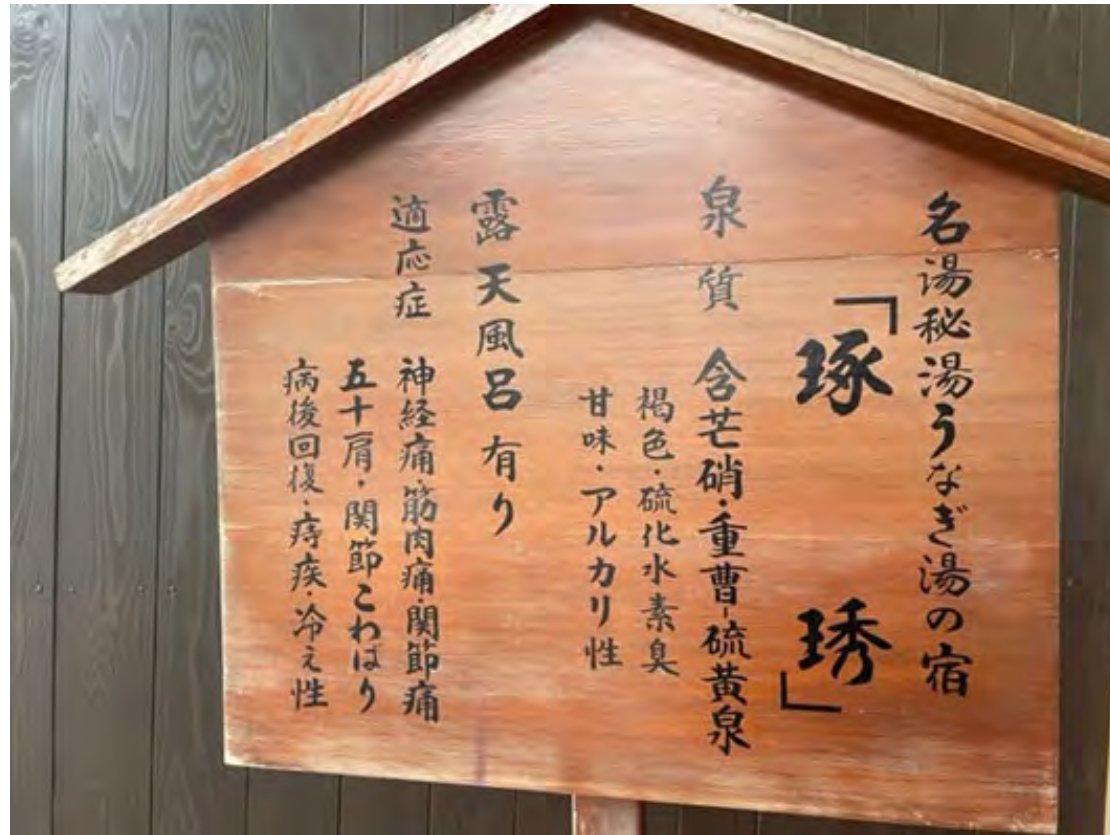 名湯秘湯うなぎ湯の宿
「琢琇」
泉質 含芒硝・重曹-硫黄泉
褐色・硫化水素臭
甘味・アルカリ性
露天風呂有り
適応症 神経痛・筋肉痛・関節痛
五十肩・関節こわばり
病後回復・痔疾・冷え性